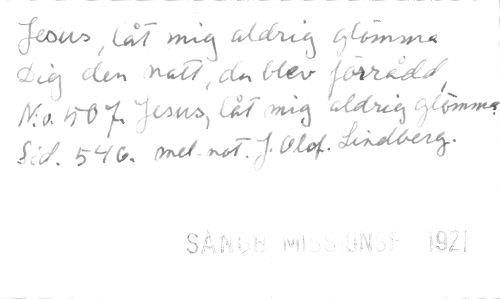 Jesus, låt mig aldrig glömma
Dig den natt, du blev förrådd,
N:o. 507. Jesus, låt mig aldrig glömma.
Sid. 546. mel. not. J. Olof. Lindberg.
SÅNGB. MISSIONSF 1921